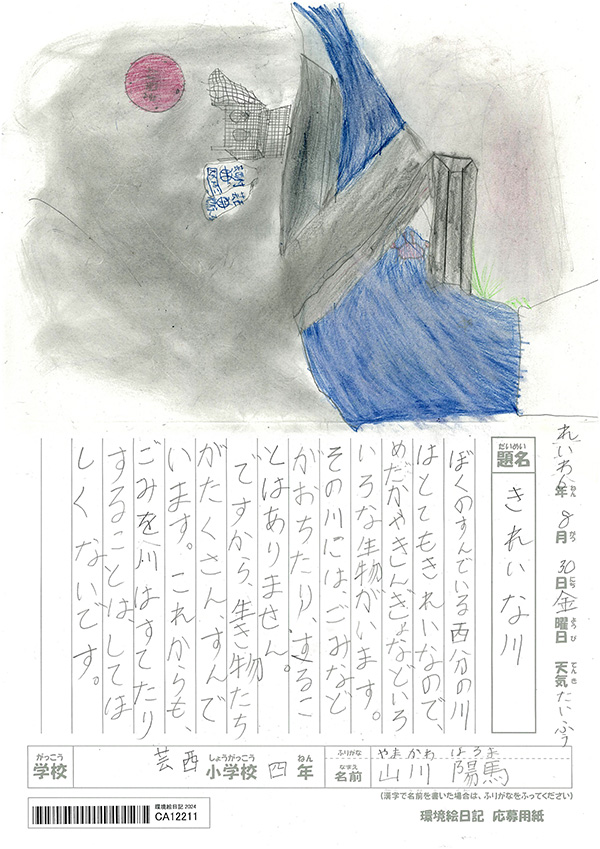 れいわ6年 8月 30日 金曜日 天気 たいふう
ねん がつ にち ようび てんき
だいめい
題名 きれいな川
ぼくのすんでいる西分の川
はとてもきれいなので、
めだかやきんぎょなどいろ
いろな生物がいます。
その川には、ごみなど
がおちたり、するこ
とはありません。
ですから、生き物たち
がたくさん、すんで
います。これからも、
ごみを川はすてたり
することは、してほ
しくないです。
がっこう しょうがっこう ねん
学校 芸西小学校 四年
ふりがな やまかわ はるま
なまえ
名前 山川 陽馬
(漢字で名前を書いた場合は、ふりがなをふってください)
環境絵日記 2024
CA12211
環境絵日記 応募用紙